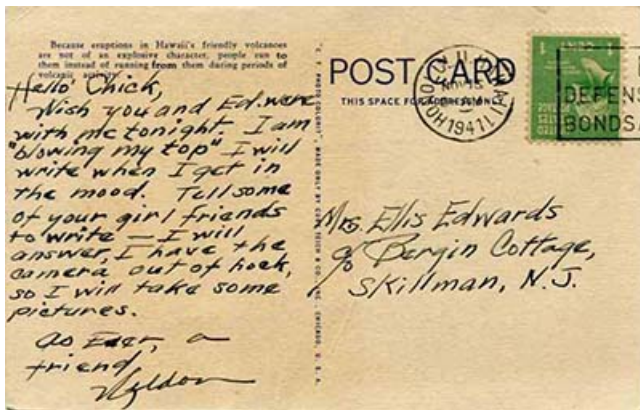 Because eruptions in Hawaii's friendly volcanoes
are not of an explosive character, people run to
them instead of running from them during periods of
volcanic activity.
Hello Chick,
Wish you and Ed. were
with me tonight. I am
"blowing my top" I will
write when I get in
the mood. Tell some
of your girl friends
to write — I will
answer, I have the
camera out of hock,
so I will take some
pictures.
As Ever, a
friend
Weldon
POST CARD
THIS SPACE FOR ADDRESS ONLY
HONOLULU
HAWAII
NOV 15
1941
DEFENSE
BONDS
1
Mrs. Ellis Edwards
c/o Bergin Cottage,
Skillman, N.J.